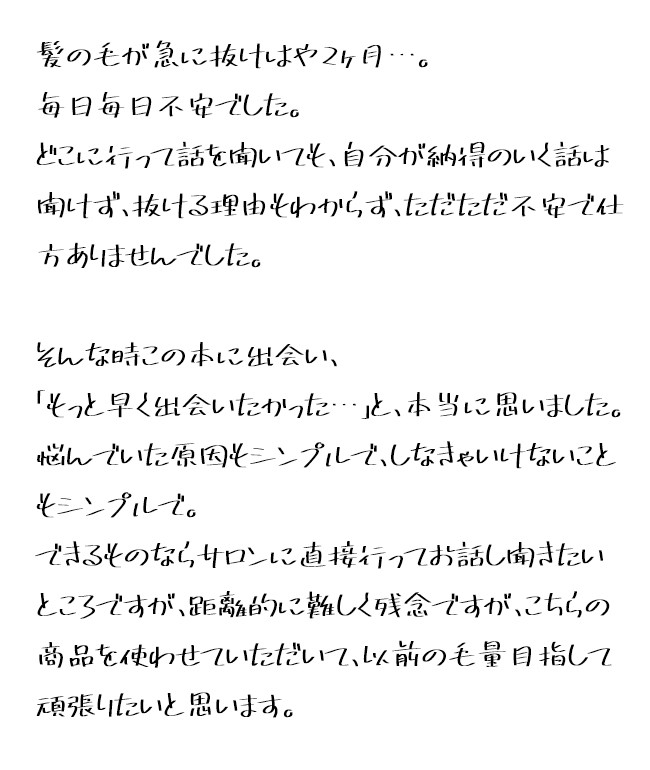 髪の毛が急に抜けはや2ヶ月…。
毎日毎日不安でした。
どこに行って話を聞いても、自分が納得のいく話は
聞けず、抜ける理由もわからず、ただただ不安で仕
方ありませんでした。
そんな時この本に出会い、
「もっと早く出会いたかった…」と、本当に思いました。
悩んでいた原因もシンプルで、しなきゃいけないこと
もシンプルで。
できるものならサロンに直接行ってお話し聞きたい
ところですが、距離的に難しく残念ですが、こちらの
商品を使わせていただいて、以前の毛量目指して
頑張りたいと思います。